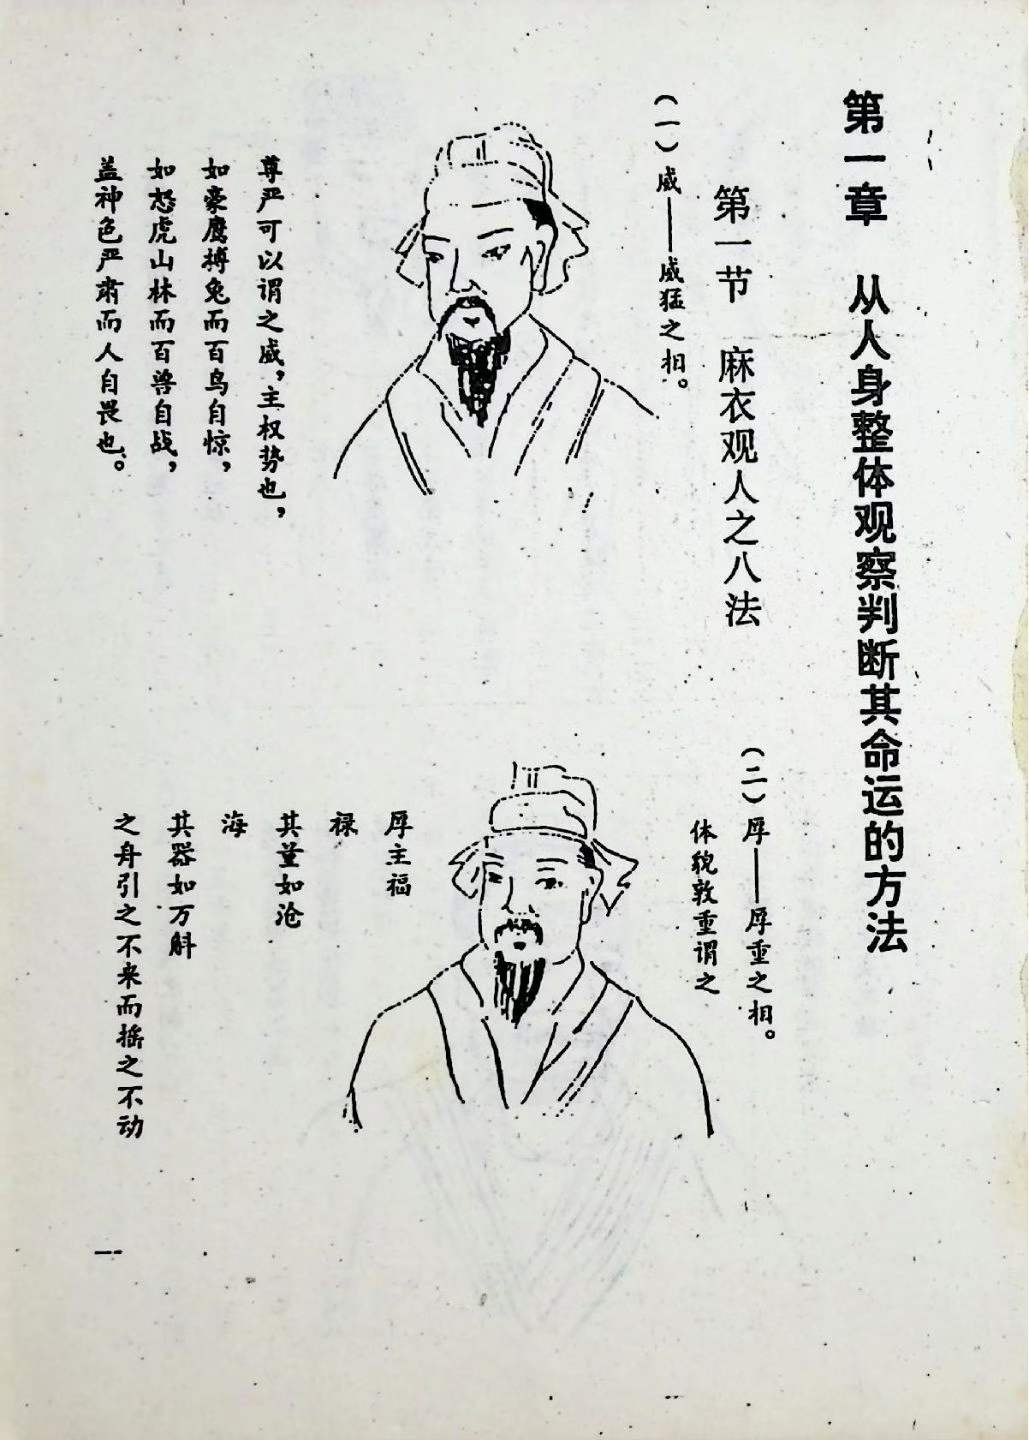 第一章 从人身整体观察判断其命运的方法
第一节 麻衣观人之八法
(一)威——威猛之相。
尊严可以谓之威，主权势也，
如豪鹰搏兔而百鸟自惊，
如怒虎山林而百兽自战，
盖神色严肃而人自畏也。
(二)厚——厚重之相。
体貌敦重谓之
厚主福
禄
其量如沧
海
其器如万斛
之舟引之不来而摇之不动
一